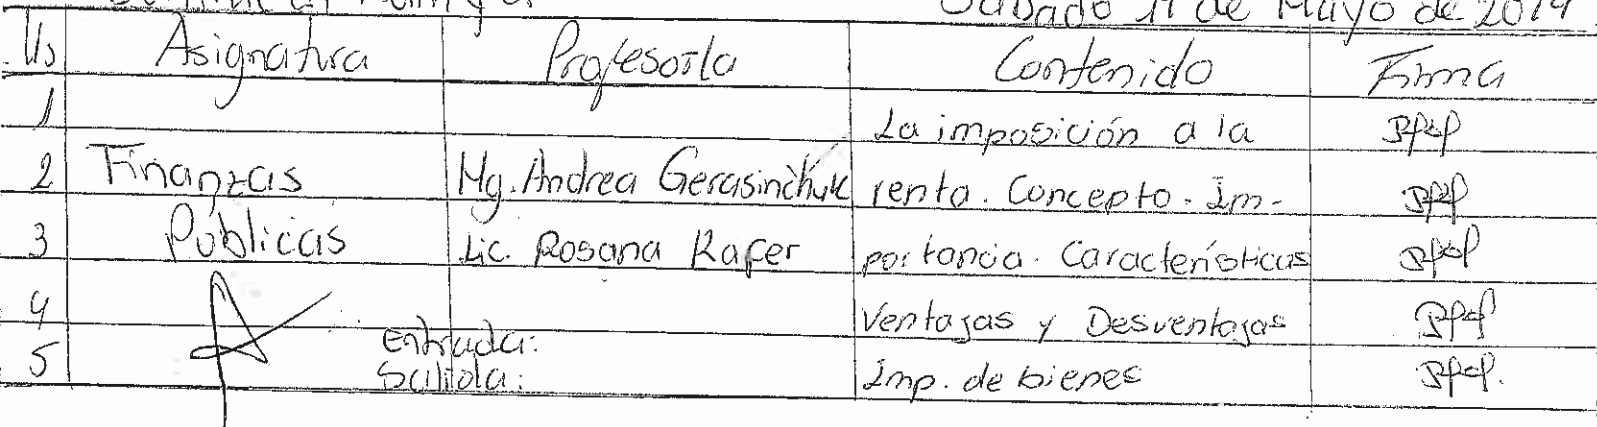 Sábado 11 de Mayo de 2019
Hs Asignatura Profesor/a Contenido Firma
1 La imposición a la
2 Finanzas Mg. Andrea Gerasinchuk renta. Concepto. Im-
3 Públicas Lic. Rosana Rafer portancia. Características
4 Ventajas y Desventajas
Entrada:
5 Salida: Imp. de bienes